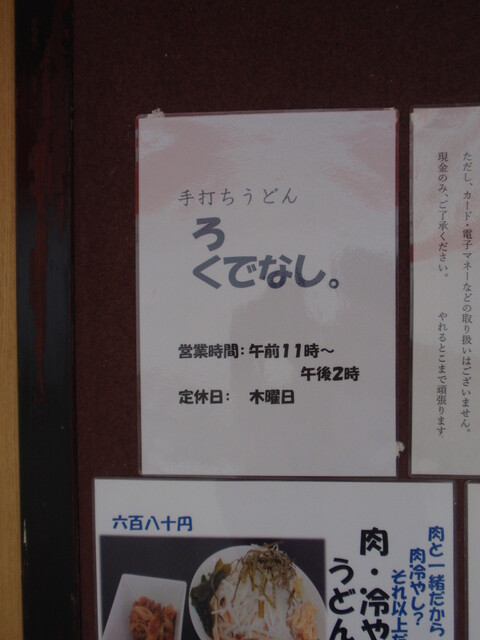 手打ちうどん
ろ
くでなし。
営業時間：午前11時～
午後2時
定休日：　木曜日
ただし、カード・電子マネーなどの取り扱いはございません。
現金のみ、ご了承ください。　　やれるとこまで頑張ります。
六百八十円
肉と一緒だから
肉冷やし？
それ以上
肉・冷や
うどん